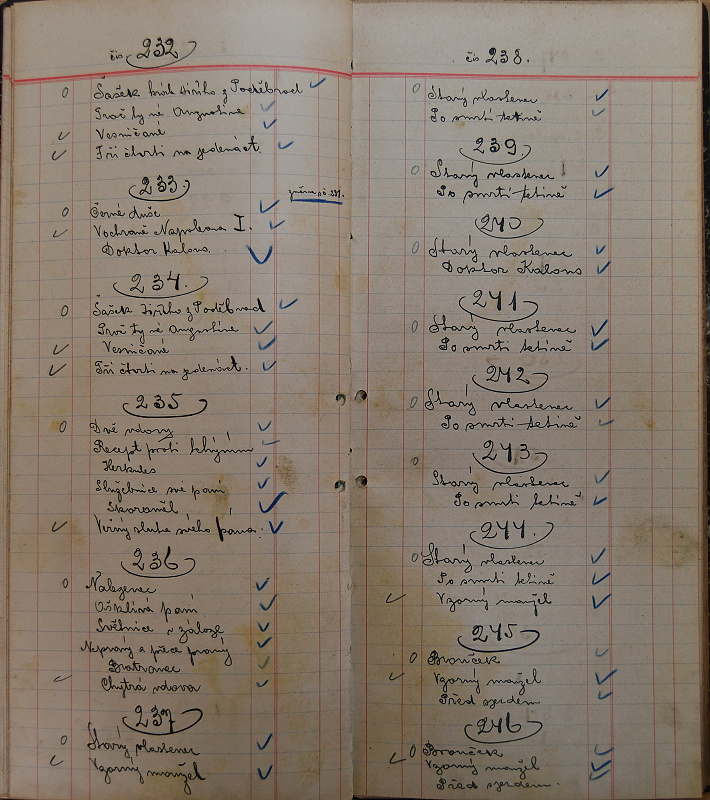 čís 232
Šašek krále Jiřího z Poděbrad
Proč ty né Augustine
Vesničané
Tři čtvrti na jedenáct.
233
Černé duše
Vochraně Napoleona I.
Doktor Kalous
234.
Šašek Jiřího z Poděbrad
Proč ty né Augustine
Vesničané
Tři čtvrti na jedenáct.
235
Dvě vdovy
Recept proti tchýním
Herkules
Služebnice své paní
Zkoraněl
Věrný sluha svého pána.
236
Nalezenec
Ošklivá paní
Světnice v záloze
Nepravý a přece pravý
Bratranec
Chytrá vdova
237
Starý vlastenec
Vzorný manžel
čís 238.
Starý vlastenec
Po smrti tetině
239
Starý vlastenec
Po smrti tetině
240
Starý vlastenec
Doktor Kalous
241
Starý vlastenec
Po smrti tetině
242
Starý vlastenec
Po smrti tetině
243
Starý vlastenec
Po smrti tetině
244.
Starý vlastenec
Po smrti tetině
Vzorný manžel
245
Brouček
Vzorný manžel
Před sjezdem
246
Brouček
Vzorný manžel
Před sjezdem.